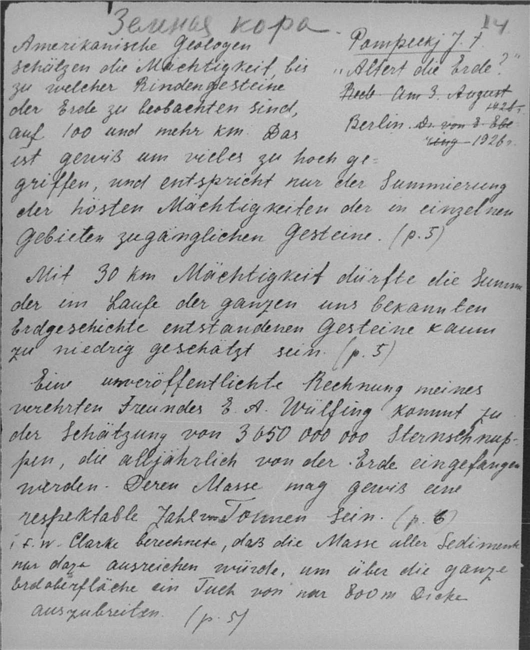 Земная кора
14
Pompeckj J. f.
"Altert die Erde?"
Rede Am 3. August
1926 г.
Berlin.
1926 г.
Amerikanische Geologen
schätzen die Mächtigkeit bis
zu welcher Rindengesteine
der Erde zu beobachten sind,
auf 100 und mehr km. Das
ist gewiß um vieles zu hoch ge-
griffen, und entspricht nur der Summierung
der hösten Mächtigkeiten der in einzelnen
Gebieten zugänglichen Gesteine. (p. 5)
Mit 30 km Mächtigkeit dürfte die Summe
der im Laufe der ganzen uns bekannten
Erdgeschichte entstandenen Gesteine kaum
zu niedrig geschätzt sein. (p. 5)
Eine unveröffentlichte Rechnung meines
verehrten Freundes E. A. Wülfing kommt zu
der Schätzung von 3 650 000 000 Sternschnup-
pen, die alljährlich von der Erde eingefangen
werden. Deren Masse mag gewiß eine
respektable Zahl von Tonnen sein. (p. 6)
F. W. Clarke berechnete, daß die Masse aller Sedimente
nur dazu ausreichen würde, um über die ganze
Erdoberfläche ein Tuch von nur 800 m Dicke
auszubreiten. (p. 5)